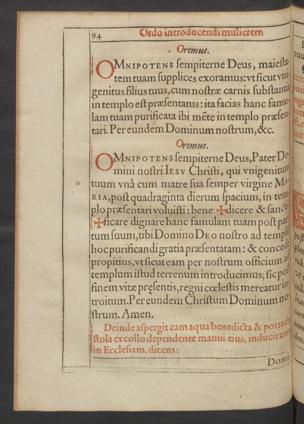 94 Ordo introducendi mulierem
Oremus.
OMNIPOTENS sempiterne Deus, maiesta-
tem tuam supplices exoramus: vt sicut vni-
genitus filius tuus, cum nostræ carnis substantia
in templo est præsentatus: ita facias hanc famu-
lam tuam purificata tibi mēte in templo præsen-
tari. Per eundem Dominum nostrum, &c.
Oremus.
OMNIPOTENS sempiterne Deus, Pater Do-
mini nostri IESV Christi, qui vnigenitum
tuum vnà cum matre sua semper virgine MA-
RIA, post quadraginta dierum spacium, in tem-
plo præsentari voluisti: bene ✠ dicere & sancti-
✠ ficare dignare hanc famulam tuam post par-
tum suum, tibi Domino DEO nostro ad templum
hoc purificandi gratia præsentatam: & concede
propitius, vt sicut eam per nostrum officium ad
templum istud terrenum introducimus; sic post
finem vitæ præsentis, regni cœlestis mereatur in-
troitum. Per eundem Christum Dominum no-
strum. Amen.
Deinde aspergit eam aqua benedicta & porrecta
stola ex collo dependente manui eius, inducit eam
in Ecclesiam, dicens: